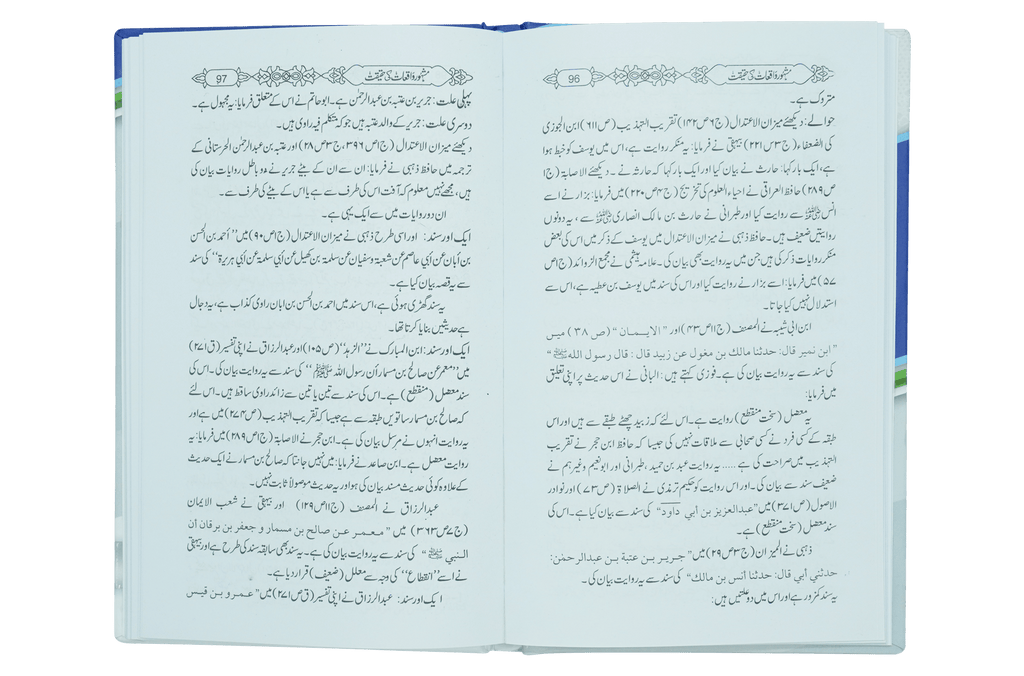 مشہور واقعات کی حقیقت 96
متروک ہے۔
حوالے: دیکھئے میزان الاعتدال (ج۶ ص۱۴۲) تقریب التہذیب (ص۶۱۱) ابن الجوزی
کی الضعفاء (ج۳ س۲۲۱) بیہقی نے فرمایا: یہ منکر روایت ہے، اس میں یوسف کو خبط ہوا
ہے، ایک بار کہا: حارث نے بیان کیا اور ایک بار کہا کہ حارثہ نے۔ دیکھئے الاصابۃ (ج۱
ص۲۸۹) حافظ العراقی نے احیاء العلوم کی تخریج (ج۴ ص۲۲۰) میں فرمایا: بزار نے اسے
انس ؓ سے روایت کیا اور طبرانی نے حارث بن مالک انصاری ؓ سے، یہ دونوں
روایتیں ضعیف ہیں۔ حافظ ذہبی نے میزان الاعتدال میں یوسف کے ذکر میں اس کی بعض
منکر روایات ذکر کی ہیں جن میں یہ روایت بھی بیان کی۔ علامہ ہیثمی نے مجمع الزوائد (ج۱ ص
۵۷) میں فرمایا: اسے بزار نے روایت کیا اور اس کی سند میں یوسف بن عطیہ ہے، اس سے
استدلال نہیں کیا جاتا۔
ابن ابی شیبہ نے المصنف (ج۱۱ ص۴۳) اور ”الایمان“ (ص ۳۸) میں
”ابن نمیر قال: حدثنا مالك بن مغول عن زبید قال: قال رسول الله ﷺ“
کی سند سے یہ روایت بیان کی ہے۔ فوزی کہتے ہیں: البانی نے اس حدیث پر اپنی تعلیق
میں فرمایا:
یہ معضل (سخت منقطع) روایت ہے۔ اس لئے کہ زبید چھٹے طبقے سے ہیں اور اس
طبقہ کے کسی فرد نے کسی صحابی سے ملاقات نہیں کی جیسا کہ حافظ ابن حجر نے تقریب
التہذیب میں صراحت کی ہے ..... یہ روایت عبد بن حمید، طبرانی اور ابونعیم وغیرہم نے
ضعیف سند سے بیان کی۔ اور اس روایت کو حکیم ترمذی نے الصلاۃ (ص۷۳) اور نوادر
الاصول (ص۳۷۱) میں ”عبدالعزیز بن أبي داود“ کی سند سے بیان کیا ہے۔ اس کی
سند معضل (سخت منقطع) ہے۔
ذہبی نے المیزان (ج۳ ص۲۹) میں ”جریر بن عتبة بن عبدالرحمٰن:
حدثني أبي قال: حدثنا أنس بن مالك“ کی سند سے یہ روایت بیان کی۔
یہ سند کمزور ہے اور اس میں دو علتیں ہیں:
مشہور واقعات کی حقیقت 97
پہلی علت: جریر بن عتبہ بن عبدالرحمٰن ہے۔ ابو حاتم نے اس کے متعلق فرمایا: یہ مجہول ہے۔
دوسری علت: جریر کے والد عتبہ ہیں جو کہ متکلم فیہ راوی ہیں۔
دیکھئے میزان الاعتدال (ج۱ ص۳۹۶، ج۳ ص۲۸) اور عتبہ بن عبدالرحمٰن الحرستانی کے
ترجمہ میں حافظ ذہبی نے فرمایا: ان سے ان کے بیٹے جریر نے دو باطل روایات بیان کی
ہیں، مجھے نہیں معلوم کہ آفت اس کی طرف سے ہے یا اس کے بیٹے کی طرف سے۔
ان دو روایات میں سے ایک یہی ہے۔
ایک اور سند: اور اسی طرح ذہبی نے میزان الاعتدال (ج۱ ص۹۰) میں ”أحمد بن الحسن
بن أبان عن أبي عاصم عن شعبة وسفیان عن سلمة بن کهیل عن أبي سلمة عن أبي هریرة“ کی سند
سے یہ قصہ بیان کیا ہے۔
یہ سند گھڑی ہوئی ہے، اس سند میں احمد بن الحسن بن ابان راوی کذاب ہے، یہ دجال
ہے حدیثیں بنایا کرتا تھا۔
ایک اور سند: ابن المبارک نے ”الزہد“ (ص۱۰۵) اور عبدالرزاق نے اپنی تفسیر (ق۲۷۱)
میں ”معمر عن صالح بن مسمار أن رسول الله ﷺ“ کی سند سے یہ روایت بیان کی۔ اس کی
سند معضل (منقطع) ہے۔ اس کی سند سے تین یا تین سے زائد راوی ساقط ہیں۔ اس لئے
کہ صالح بن مسمار ساتویں طبقہ سے ہے جیسا کہ تقریب التہذیب (ص۲۷۴) میں ہے اور
یہ روایت انہوں نے مرسل بیان کی ہے۔ ابن حجر نے الاصابۃ (ج۱ ص۲۸۹) میں فرمایا: یہ
روایت معضل ہے۔ ابن صاعد نے فرمایا: میں نہیں جانتا کہ صالح بن مسمار نے ایک حدیث
کے علاوہ کوئی حدیث مسند بیان کی ہو اور یہ حدیث موصولاً ثابت نہیں۔
عبدالرزاق نے المصنف (ج۱۱ ص۱۲۹) اور بیہقی نے شعب الایمان
(ج۷ ص۳۶۳) میں ”معمر عن صالح بن مسمار و جعفر بن برقان ان
النبي ﷺ“ کی سند سے یہ روایت بیان کی ہے۔ یہ سند بھی سابقہ سند کی طرح ہے اور بیہقی
نے اسے ”انقطاع“ کی وجہ سے معلل (ضعیف) قرار دیا ہے۔
ایک اور سند: عبدالرزاق نے اپنی تفسیر (ق ص۲۷۱) میں ”عمرو بن قیس